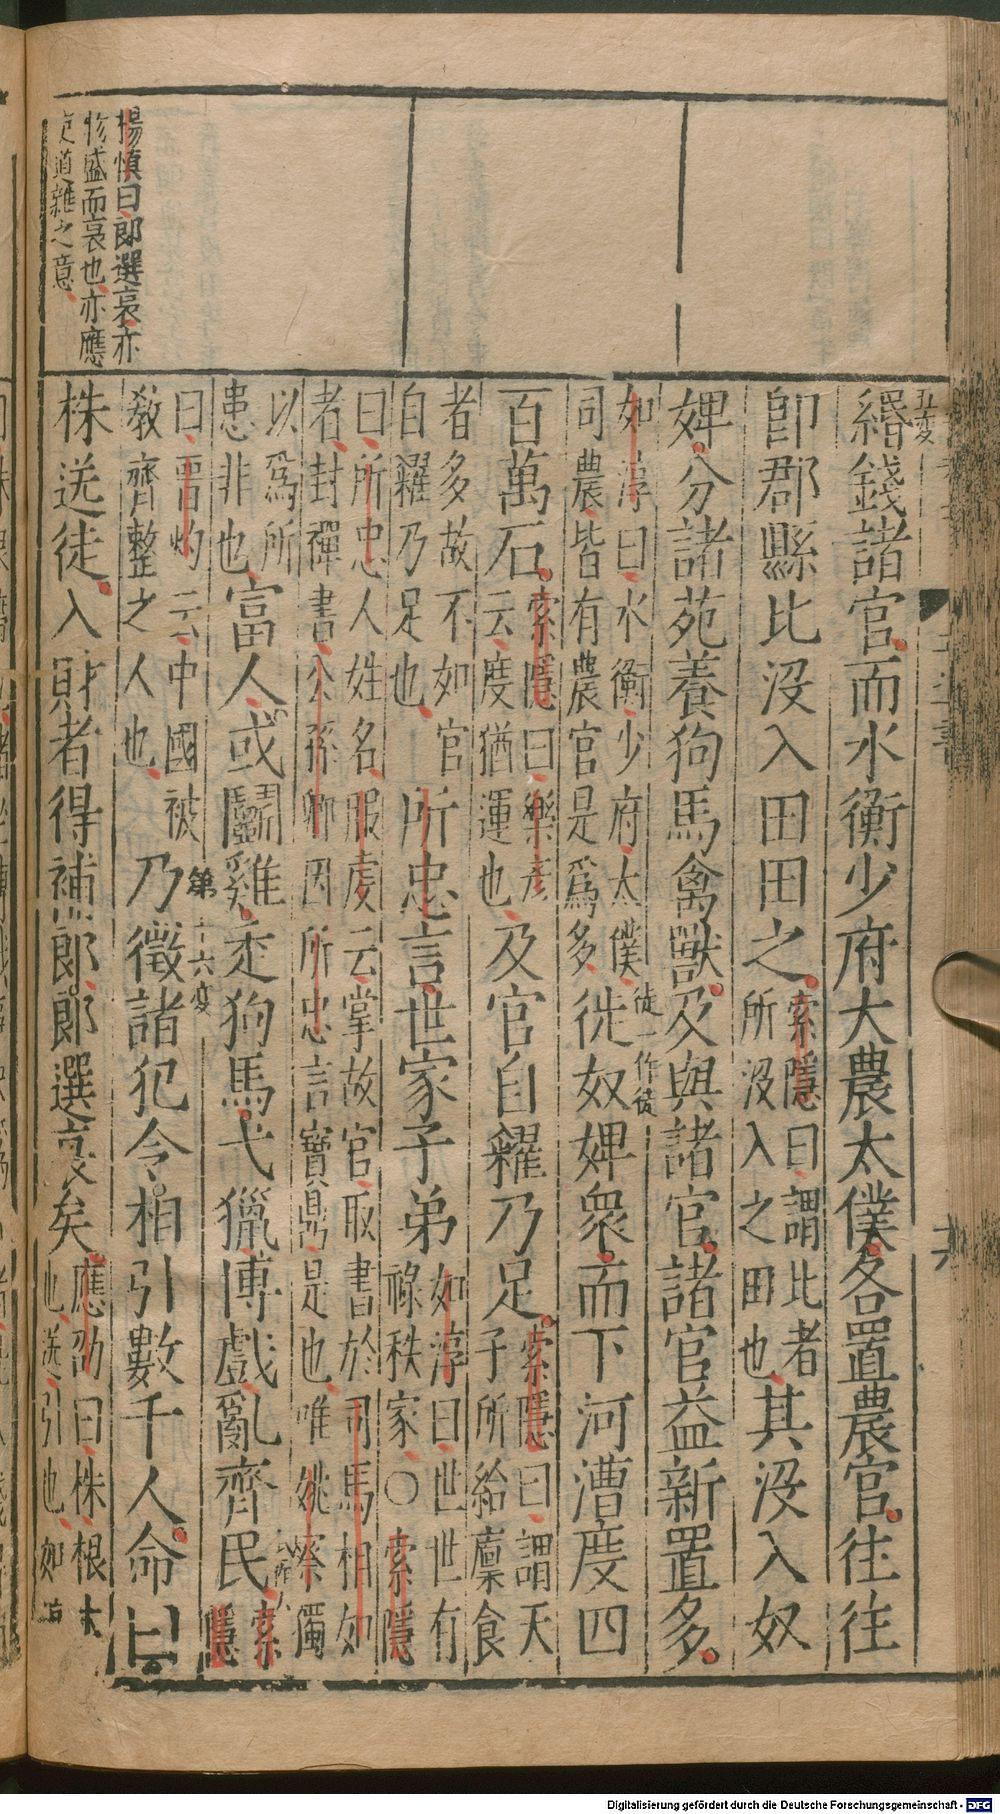 五変
緡錢諸官而水衡少府大農太僕各置農官往往
卽郡縣比沒入田田之索隱曰謂比者所沒入之田也其沒入奴
婢分諸苑養狗馬禽獸及與諸官諸官益新置多
如淳曰水衡少府太僕司農皆有農官是爲多徙一作徒徙奴婢衆而下河漕度四
百萬石索隱曰樂彥云度猶運也及官自糴乃足索隱曰謂天子所給廩食
者多故不如官自糴乃足也所忠言世家子弟如淳曰世世有祿秩家○索隱
曰所忠人姓名服虔云掌故官取書於司馬相如者封禪書公孫卿因所忠言寶鼎是也唯姚察獨
以爲所患非也富人或鬭雞走狗馬弋獵博戲亂齊民索隱
曰晋灼云中國被敎齊整之人也第十六変乃徵諸犯令相引數千人命曰
株送徒入財者得補郎郎選衰矣應劭曰株根本也送引也如
楊慎曰郎選衰亦
物盛而衰也亦應
吏道雜之意
Digitalisierung gefördert durch die Deutsche Forschungsgemeinschaft - DFG